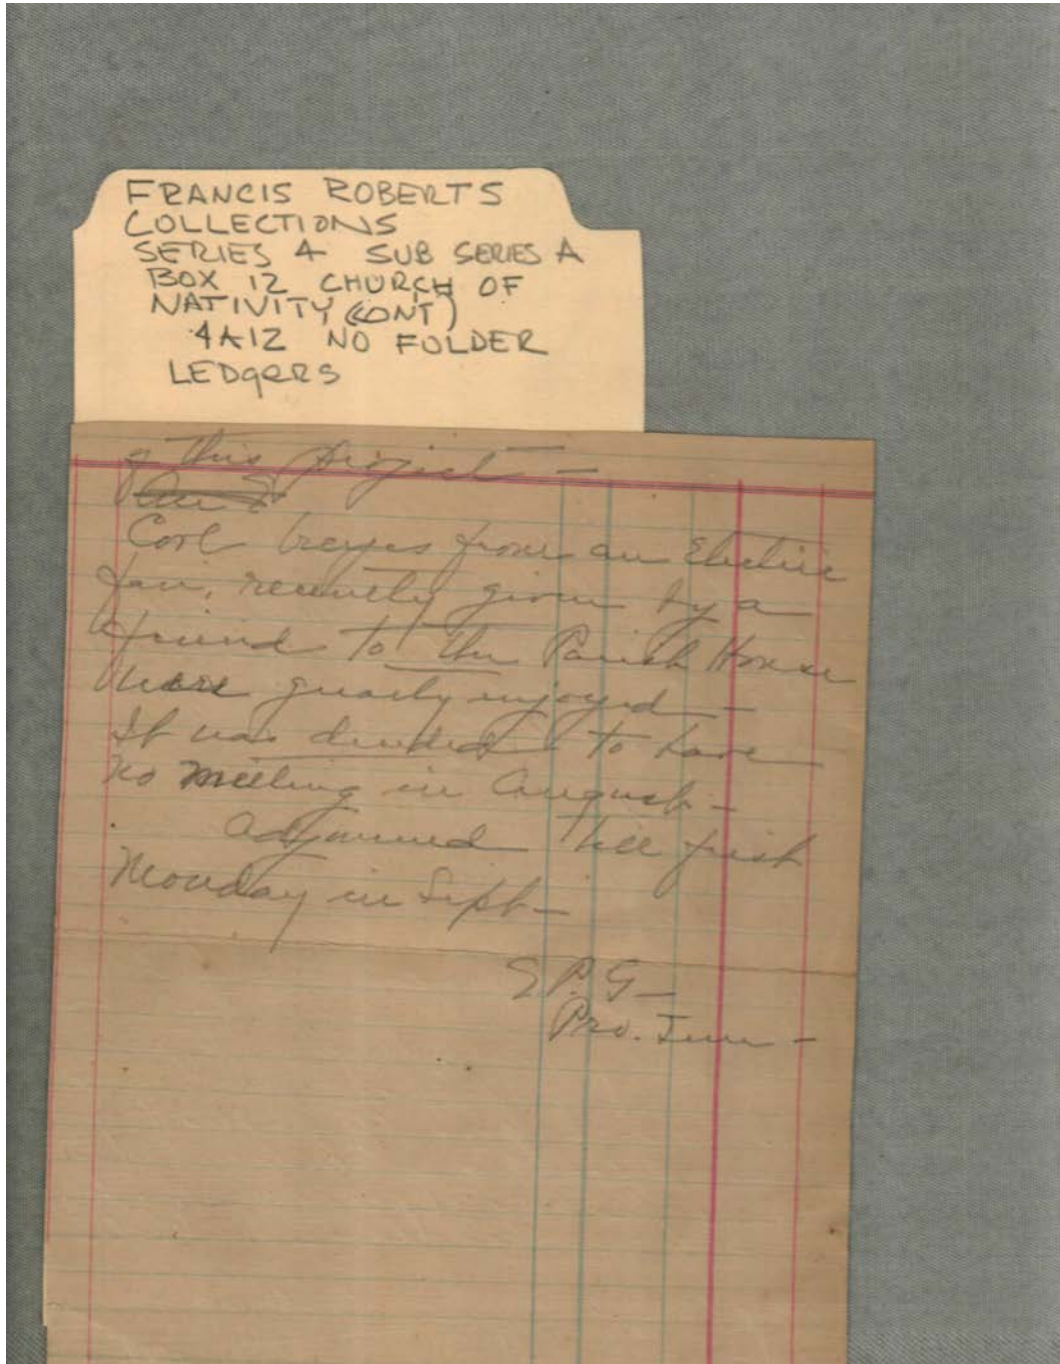 FRANCIS ROBERTS
COLLECTIONS
SERIES 4 SUB SERIES A
BOX 12 CHURCH OF
NATIVITY (CONT)
4A12 NO FOLDER
LEDgERS
of this project —
Cool breezes from an Electric
fan, recently given by a
friend to the Parish House
were greatly enjoyed —
It was decided to have
no meeting in August —
Adjourned till first
Monday in Sept —
S. P. G —
Pro. Tem —